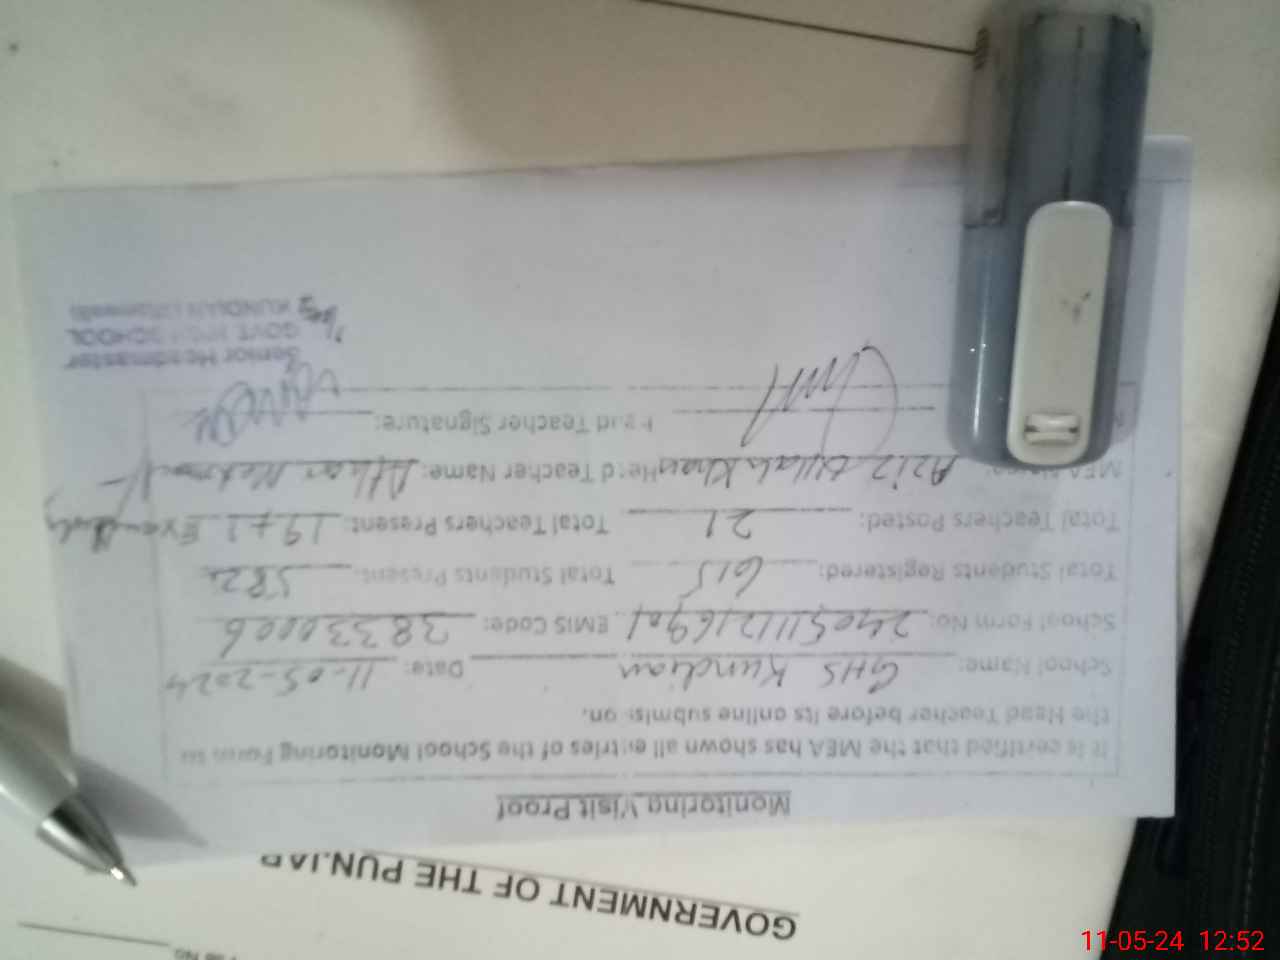 GOVERNMENT OF THE PUNJAB
Monitoring Visit Proof
It is certified that the MEA has shown all entries of the School Monitoring Form to
the Head Teacher before its online submission.
School Name: GHS Kundian Date: 11-05-2024
School Form No: EMIS Code: 38330006
Total Students Registered: 615 Total Students Present: 582
Total Teachers Posted: 21 Total Teachers Present: 19+1
MEA Name: Aziz Ullah Khan Head Teacher Name:
Head Teacher Signature:
Senior Headmaster
GOVT. HIGH SCHOOL
KUNDIAN (Mianwali)
11-05-24 12:52